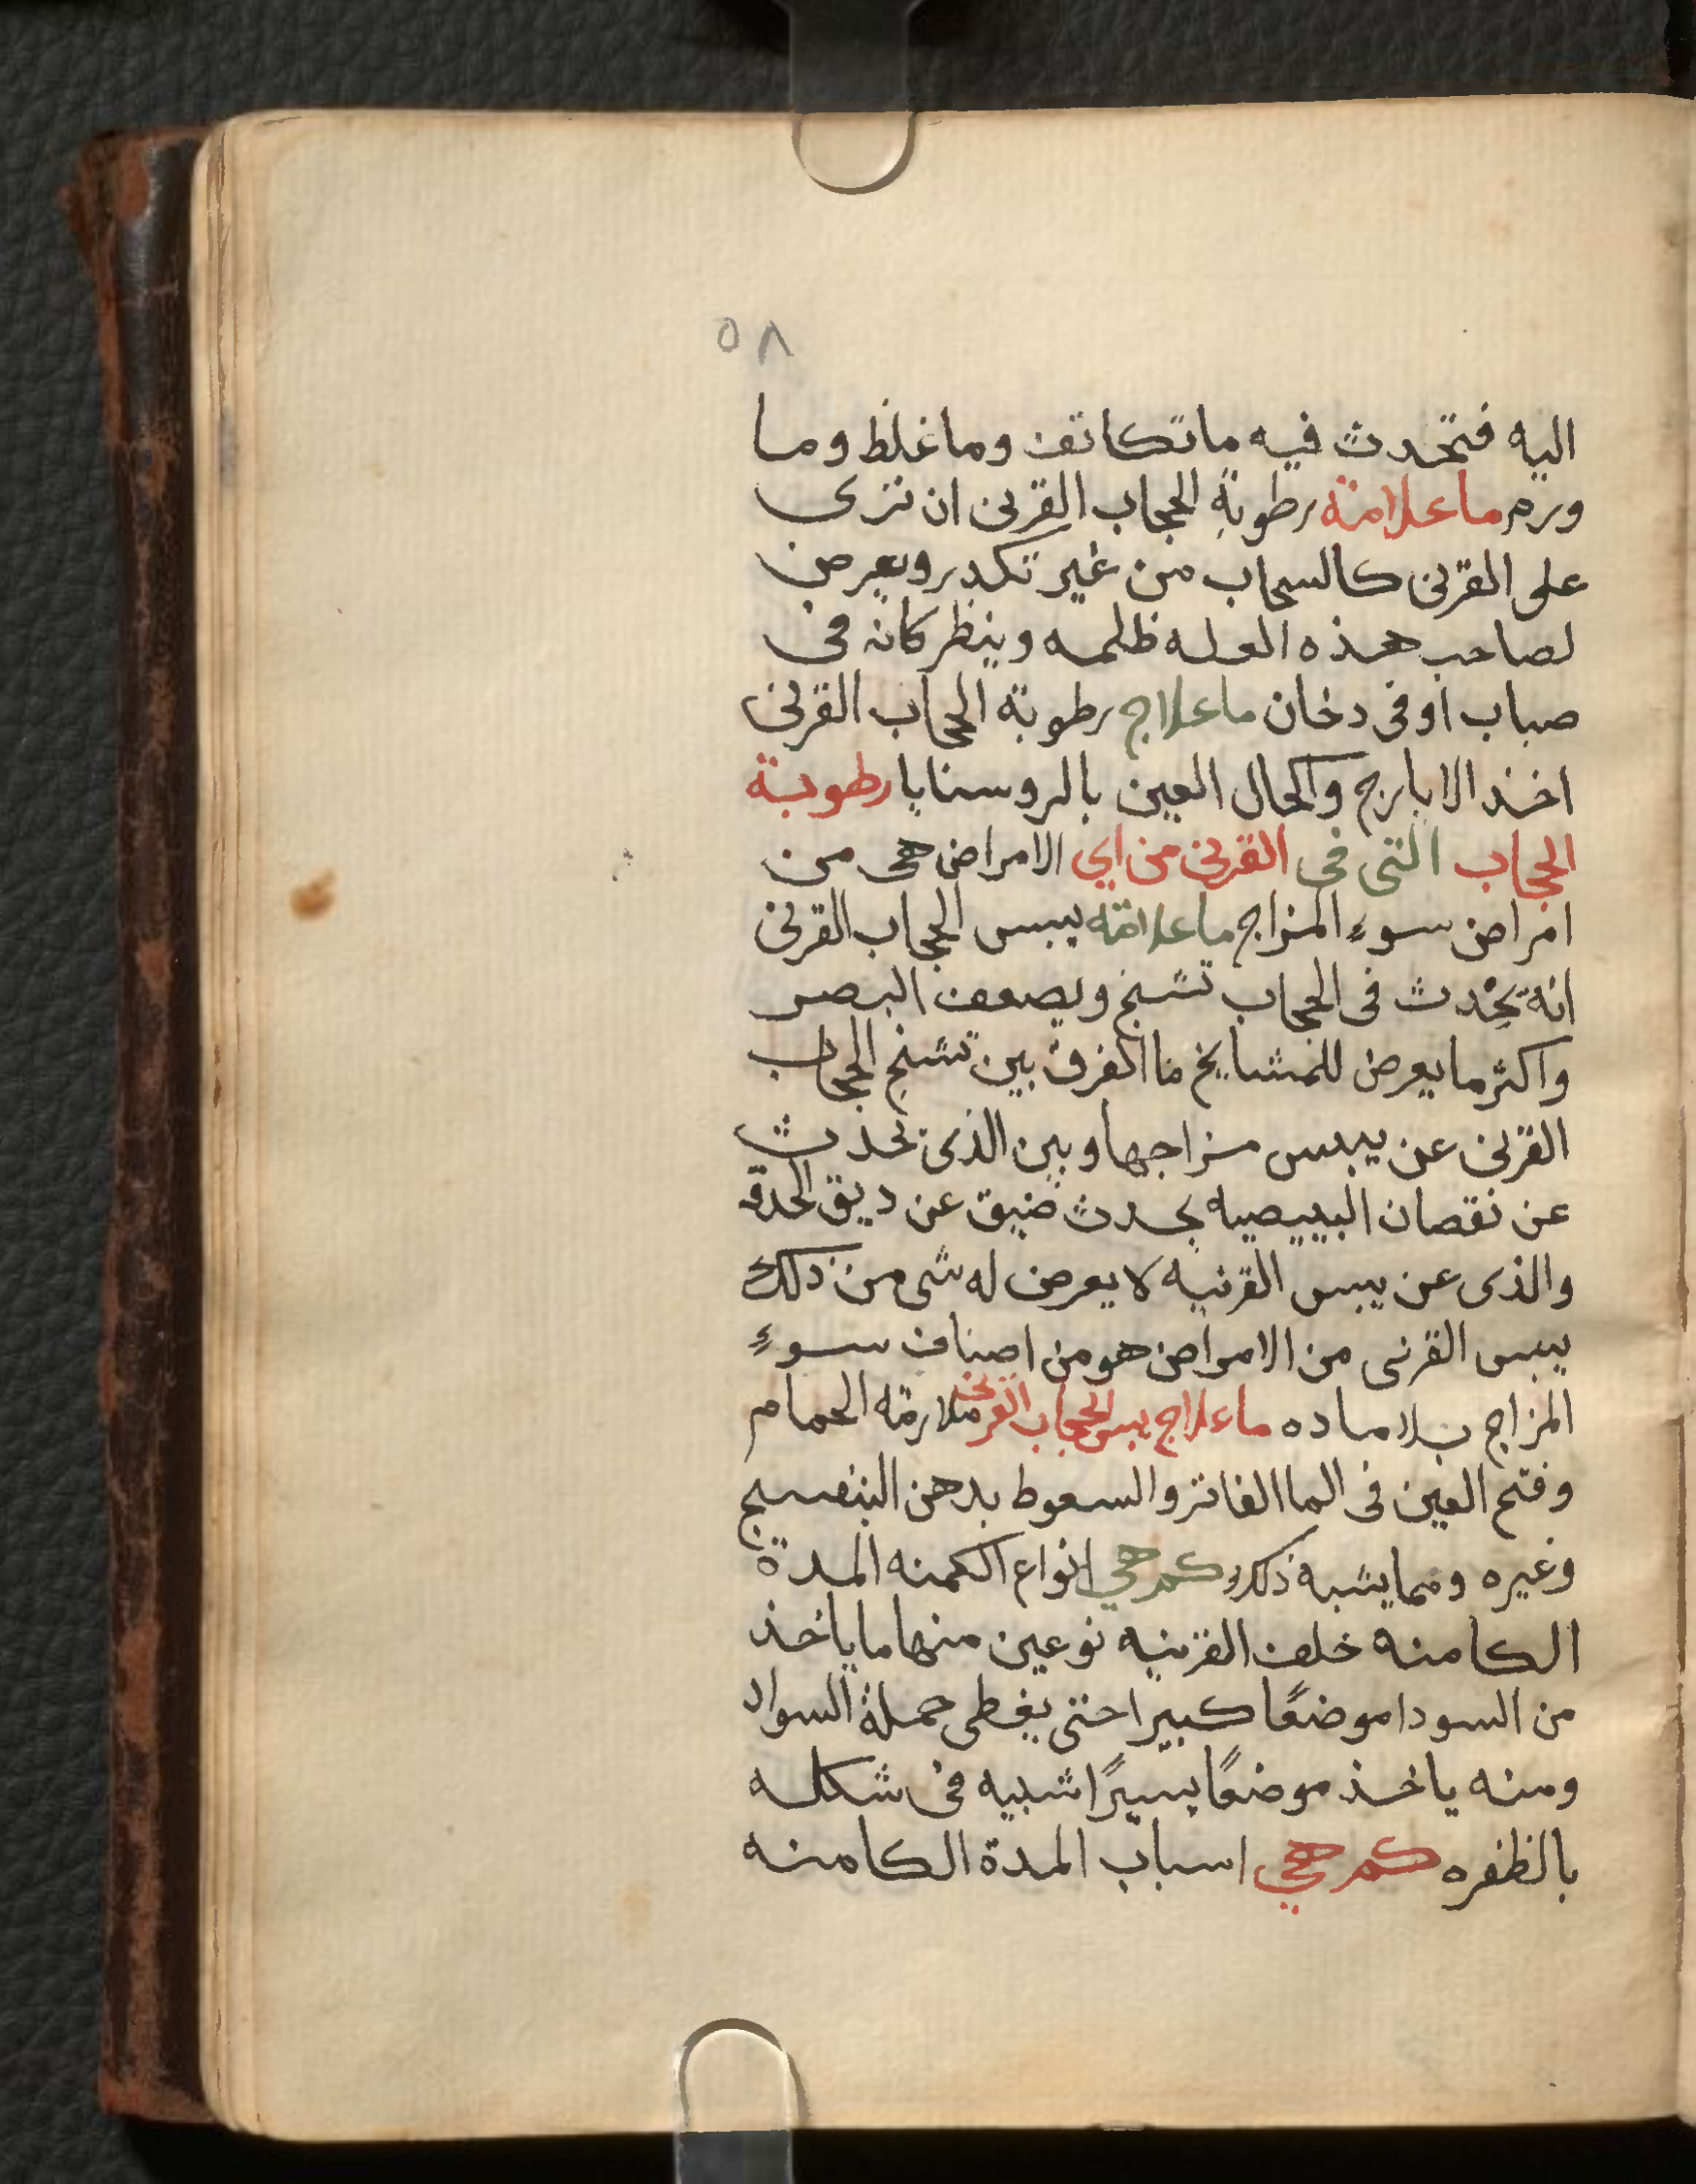 ٥٨
اليه فتحدث فيه ما تكاثف وما غلظ وما
ورم ما علامة رطوبة الحجاب القرنى ان ترى
على القرنى كالسحاب من غير تكدر ويعرض
لصاحب هذه العله ظلمه وينظر كانه فى
ضباب او فى دخان ما علاج رطوبة الحجاب القرنى
اخذ الايارج واكحال العين بالروسنايا رطوبة
الحجاب التى فى القرنى من اي الامراض هى من
امراض سوء المزاج ما علامة يبس الحجاب القرنى
انه يحدث فى الحجاب تشنج ويضعف البصر
واكثر ما يعرض للمشايخ ما الفرق بين تشنج الحجاب
القرنى عن يبس مزاجها وبين الذى تحدث
عن نقصان البييضيه يحدث ضيق عن ديق الحدقة
والذى عن يبس القرنيه لا يعرض له شى من ذلك
يبس القرنى من الامراض هو من اصناف سوء
المزاج بلا ماده ما علاج يبس الحجاب القرنى ملازمة الحمام
وفتح العين فى الما الفاتر والسعوط بدهن البنفسج
وغيره ومما يشبه ذلك كم هي انواع الكمنه المدة
الكامنة خلف القرنيه نوعين منها ما ياخذ
من السودا موضعًا كبيرا حتى يغطى جملة السواد
ومنه ياخذ موضعًا يسيرًا شبيه فى شكله
بالظفره كم هي اسباب المدة الكامنه